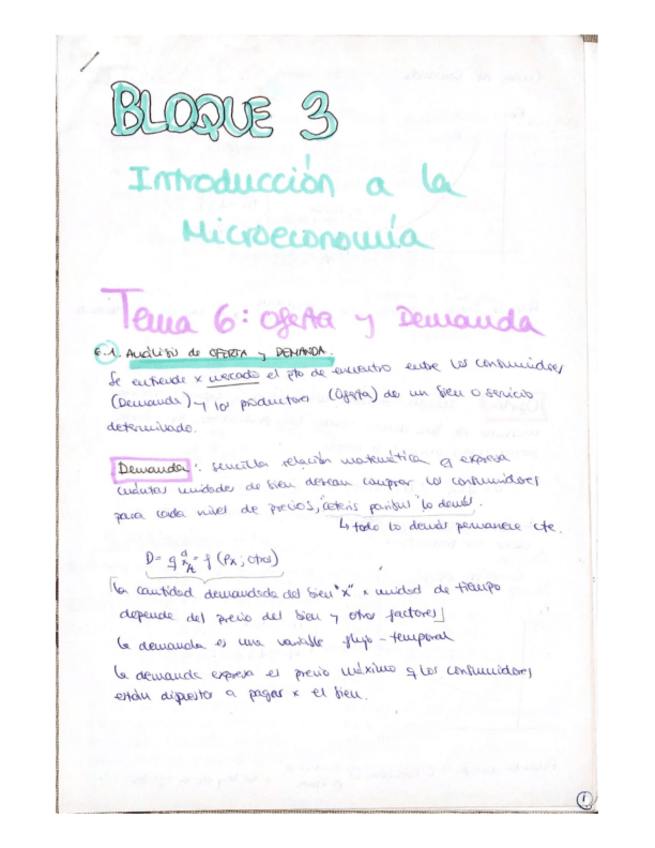 BLOQUE 3
Introducción a la
Microeconomía
Tema 6: Oferta y Demanda
6.1. Análisis de OFERTA y DEMANDA.
Se entiende x mercado el pto de encuentro entre los consumidores
(Demanda) y los productores (Oferta) de un bien o servicio
determinado.
Demanda: sencilla relación matemática q expresa
cuántas unidades de bien desean comprar los consumidores
para cada nivel de precios, ceteris paribus lo demás.
↳ todo lo demás permanece cte.
D = q = f (Px; otros)
[la cantidad demandada del bien "x" x unidad de tiempo
depende del precio del bien y otros factores]
la demanda es una variable flujo - temporal
la demanda expresa el precio máximo q los consumidores
están dispuestos a pagar x el bien.
1